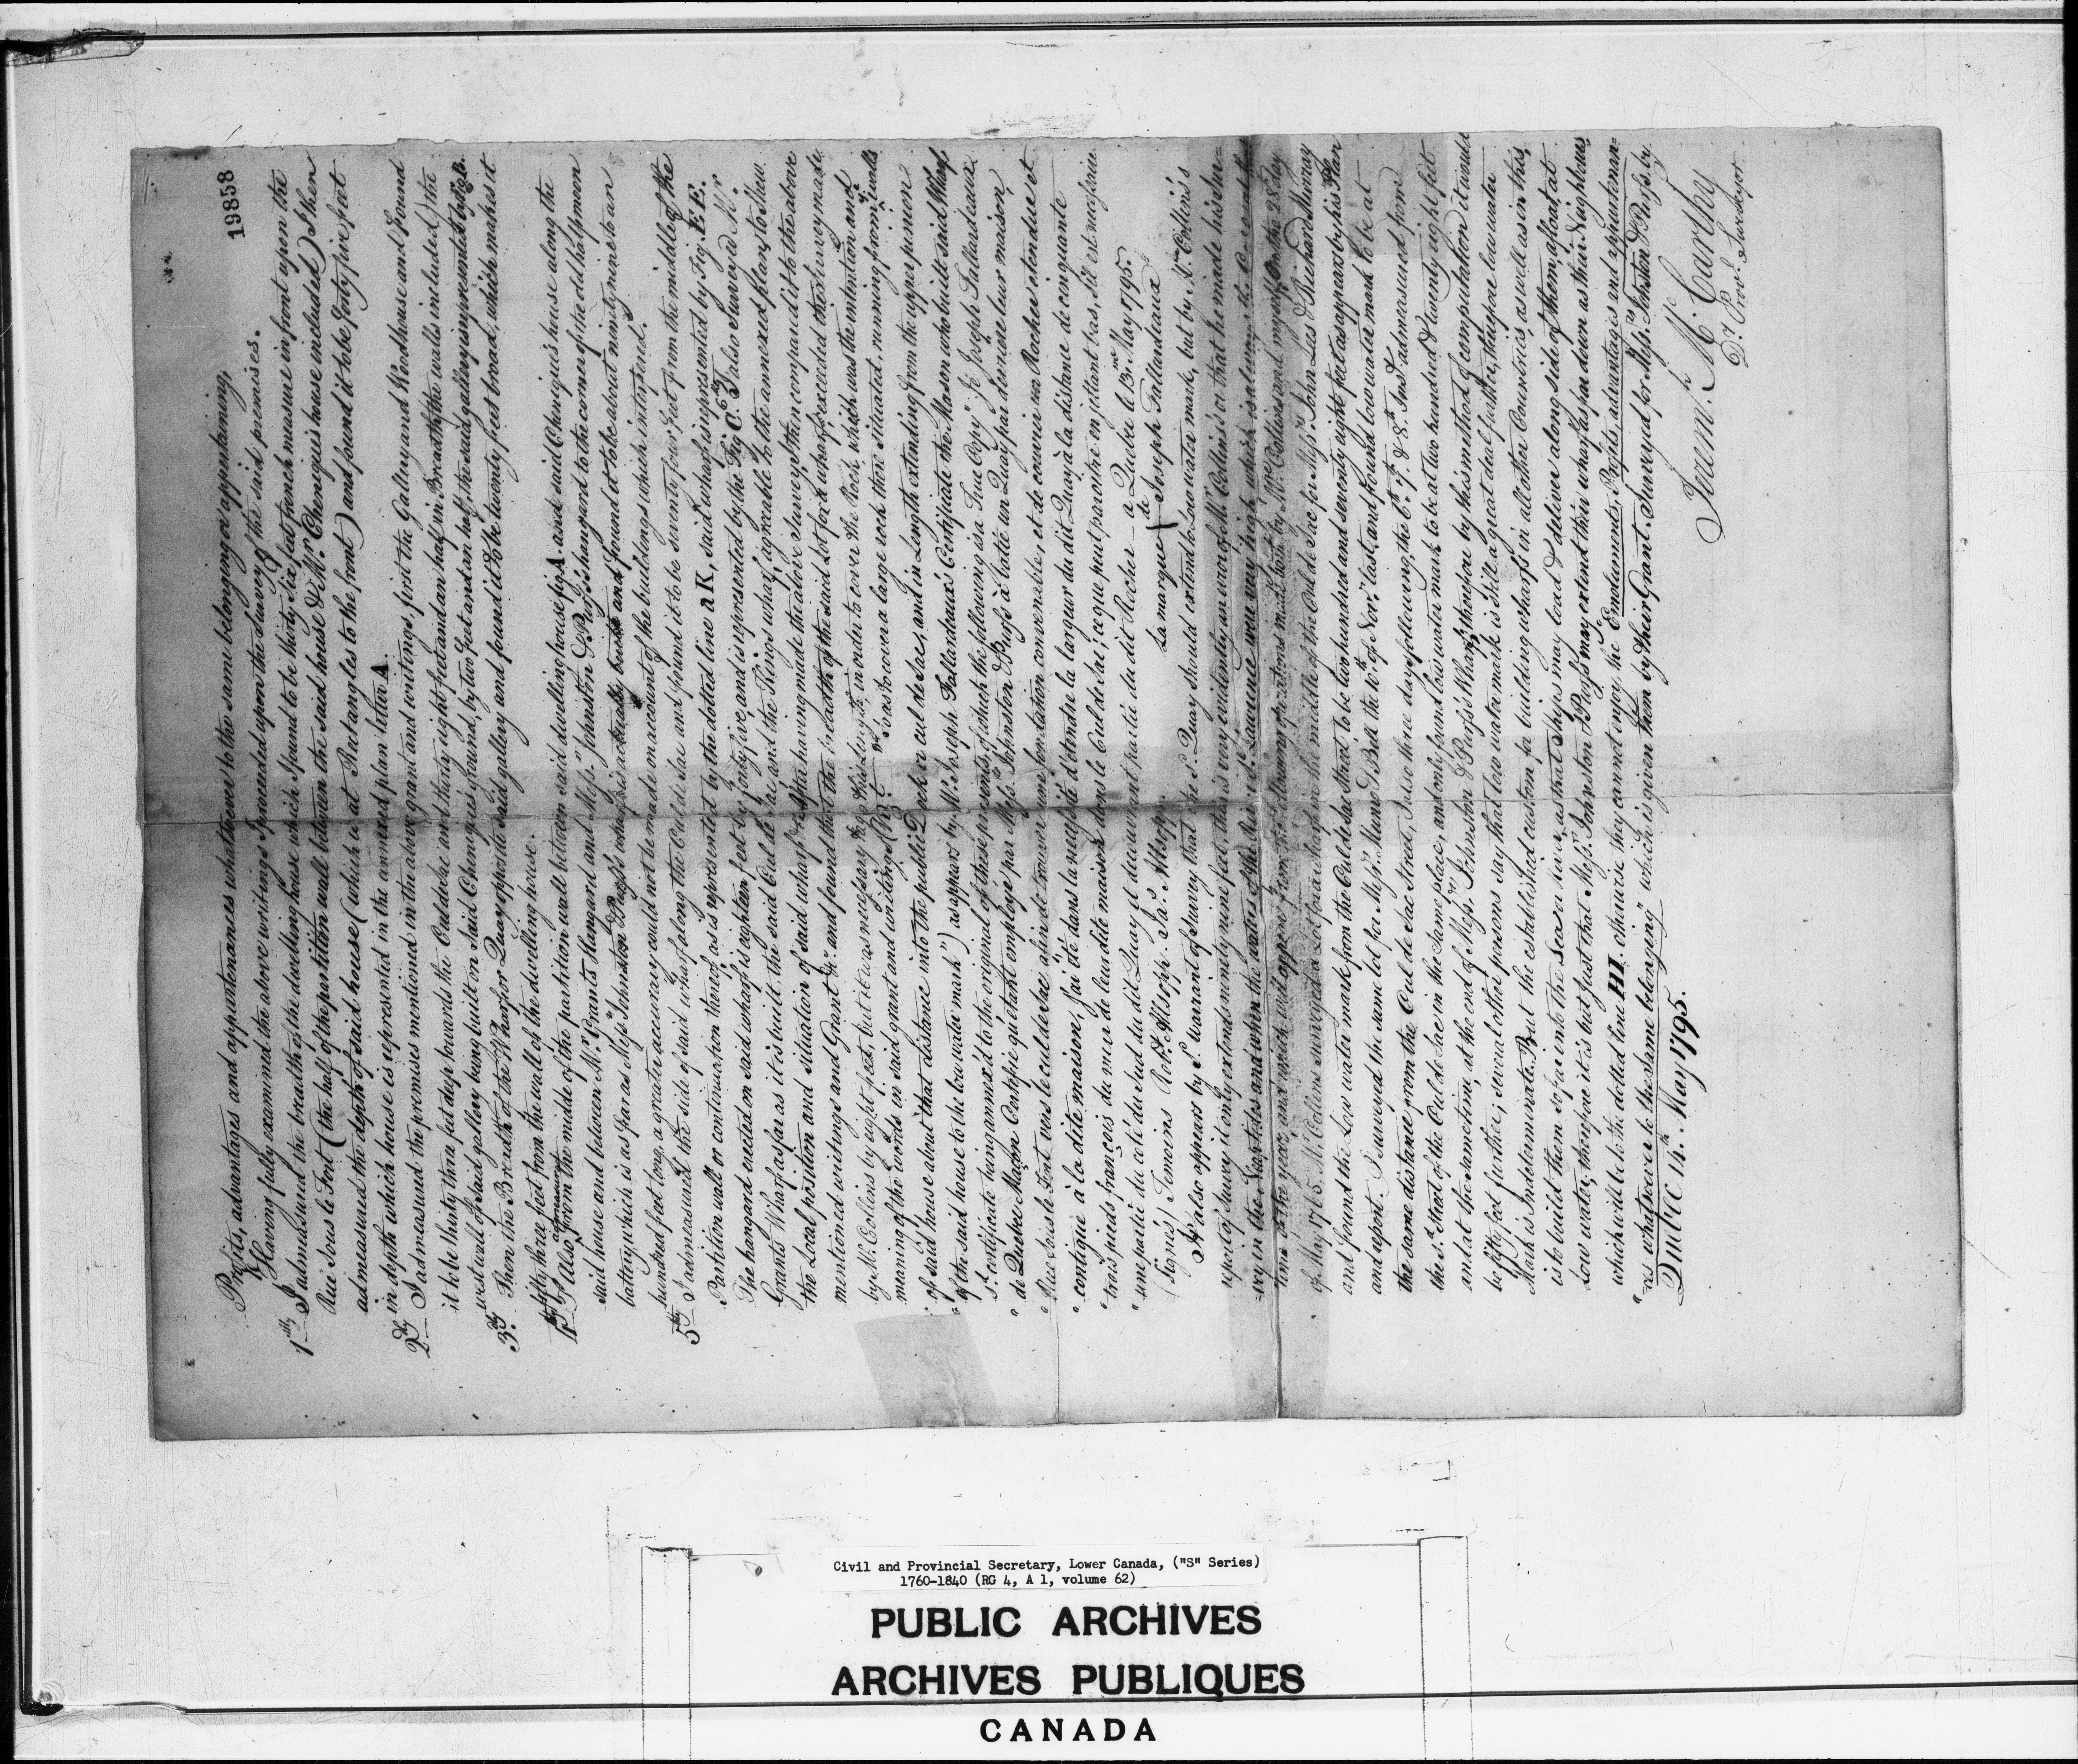 19858
Profits, advantages and appurtenances whatsoever to the same belonging or appertaining,
Having fully examined the above writings I proceeded upon the survey of the said premises.
1stly I admeasured the breadth of the dwelling house which I found to be thirty six feet french measure in front upon the
Rue Sous le Fort (the half of the partition wall between the said house & Mr. Chenequis house included) I then
admeasured the depth of said house (which is at Rectangles to the front) and found it to be forty five feet
in depth which house is represented in the annexed plan letter A.
2dly I admeasured the premises mentioned in the above grant and writings, first the Gallery and Woodhouse and found
it to be thirty three feet deep towards the Culdesac and thirty eight feet and an half in Breadth (the walls included) the
west wall of said gallery being built on said Cheneques ground, by two feet and an half, the said gallery is represented by fig. B.
3dly Then the Breadth of the Wharf or Quay opposite said gallery and found it to be twenty feet broad, which makes it
fifty three feet from the wall of the dwelling house.
4thly Also admeasured from the middle of the partition wall between said dwelling house fig. A and said Cheneques house along the
said house and between Mr. Grants Hangard and Messrs. Johnston & Purss's hangard to the corner of the old half moon
battery which is as far as Messrs. Johnston & Purss's wharf is actually built and found it to be about ninety nine to an
hundred feet long, a greater accuracy could not be made on account of the buildings which interfered.
5thly I admeasured the side of said wharf along the Cul de Sac and found it to be seventy four feet from the middle of the
Partition wall or continuation thereof as is represented by the dotted line a K, said wharf is represented by Fig. EE.
The hangard erected on said wharf is eighteen feet by forty five, and is represented by the Fig. C. 6thly I also Surveyed Mr.
Grants Wharf as far as it is built. the said Cul de Sac and the Kings wharf agreable to the annexed plan, to shew
the Local position and situation of said wharf &c. After having made the above Survey, I then compaired it to the above
mentioned writings and Grant &c. and found that the breadth of the said Lot for a wharf, exceeded the survey made
by Mr. Collins by eight feet, but it was necessary to give this length, in order to cover the Rock, which was the intention and
meaning of the words in said grant and writings (Viz.t "so as to cover a large rock there situated, running from ye. walls
" of said house about that distance into the public Dock or cul de sac, and in Length extending from the upper pinion
" of the said house to the low water mark") as appears by Mr. Joseph Fallardeaux's Certificate the Mason who built said Wharf
sd. certificate being annexed to the original of these presents, of which the following is a True Copy "Je Joseph Fallardeaux
" de Quebec Maçon Certifie qu'étant employé par Messrs. Johnston & Purss à batir un Quay par derriere leur maison,
" Rue Sous le Fort vers le cul de Sac afin de trouver une fondation convenable, et de couvrir un Rocher étendue et
" contigue à la dite maison, j'ai été dans la necessité d'étendre la largeur du dit Quay à la distance de cinquante
" trois pieds françois du mur de leur dite maison dans le Cul de Sac; ce que peut paroitre en jettant bas, s'il est necessaire
" une partie du coté du Sud du dit Quay et decouvrant partie du dit Rocher — a Quebec le 13me May 1795.
(Signés) Temoins Robt. Allsopp. Ja.s Allsopp. La marque de Joseph Fallardeaux
It also appears by sd. Warrant of Survey that the sd. Quay should extend to Low water mark, but by Mr. Collins's
report of survey it only extends ninety nine feet, this is very evidently an error of Mr. Collins's or that he made his sur=
=vey in the Neaptides and when the waters of the River St. Laurence were very high which is always the Case at this
time of the year, and which will appear from the following operations made both by Mr. Collins and myself. On the 28 day
of May 1765. Mr. Collins surveyed a Lot for a wharf in the middle of the Cul de Sac for Messrs. John Lees & Richard Murray
and found the Low water mark from the Cul de Sac Street, to be two hundred and seventy eight feet as appears by his Plan
and report. I surveyed the same lot for Messrs. Munro & Bell the 10th. of Novr. last, and found low water mark to be at
the same distance from the Cul de Sac Street, I also three days following, the 6th. 7th. & 8th. Inst. admeasured from
the sd. Street of the Cul de Sac in the same place, and only found low water mark to be at two hundred & twenty eight feet
and at the same time, at the end of Messrs. Johnston & Purss's Wharf, therefore by this method of computation it would
be fifty feet further; several other persons say that low water mark is still a great deal farther, therefore low water
Mark is Indeterminate. But the established custom for building wharfs in all other Countries, as well as in this,
is to build them so far into the Sea or River, as that Ships may load & deliver along side of them, afloat, at
Low water, therefore it is but just that Messrs. Johnston & Purss may extend their wharf as far down as their Neighbours,
which will be to the dotted line HI. otherwise they cannot enjoy, the "Emoluments, Profits, advantages and appurtenan=
"ces whatsoever to the same belonging" which is given them by their Grant. Surveyed for Messrs. Johnston & Purss. by
Quebec 14th. May 1795.
Jeremh. McCarthy
Dy. Provl. Surveyor
Civil and Provincial Secretary, Lower Canada, ("S" Series)
1760-1840 (RG 4, A 1, volume 62)
PUBLIC ARCHIVES
ARCHIVES PUBLIQUES
CANADA